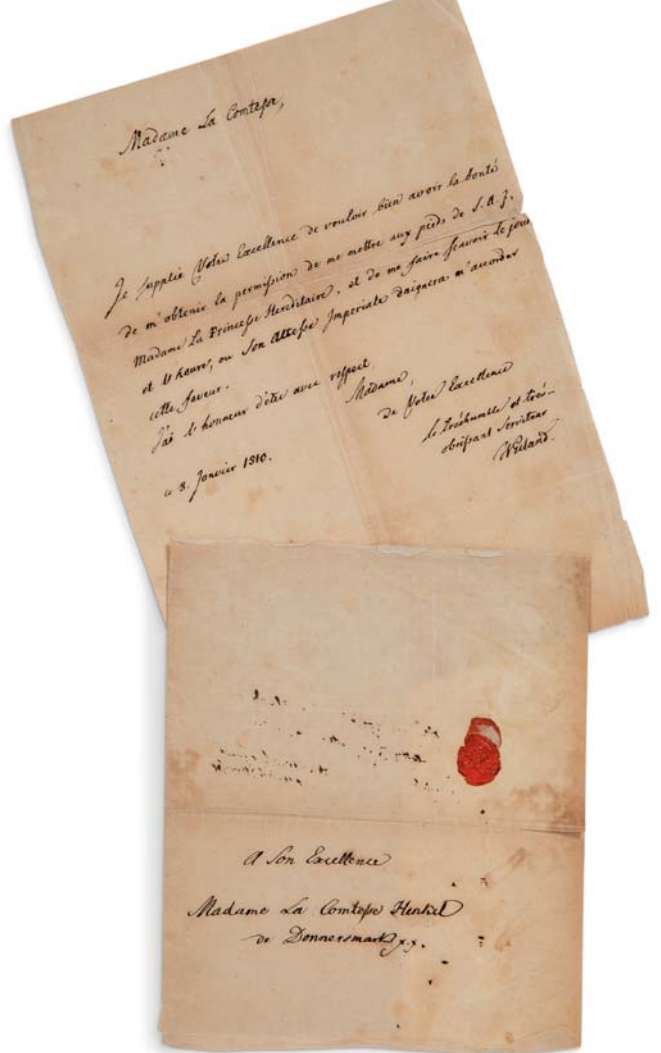 Madame La Comtesse,
Je supplie Votre Excellence de vouloir bien avoir la bonté
de m'obtenir la permission de me mettre aux pieds de S.A.J.
Madame La Princesse Hereditaire, et de me faire sçavoir le jour
et l'heure, ou Son Altesse Imperiale daignera m'accorder
cette faveur.
J'ai l'honneur d'être avec respect
Madame,
de Votre Excellence
le tréshumble et trés-
obeissant Serviteur
Wieland.
ce 8. Janvier 1810.
A Son Excellence
Madame La Comtesse Henkel
de Donnersmark